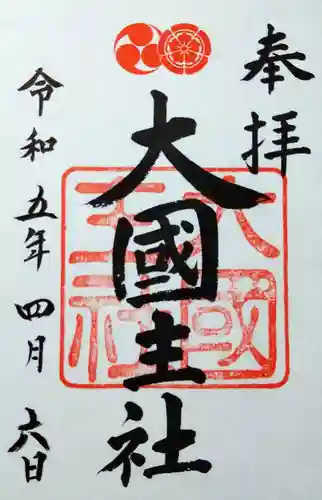 奉拝
大國主社
大國
主社
令和五年四月六日